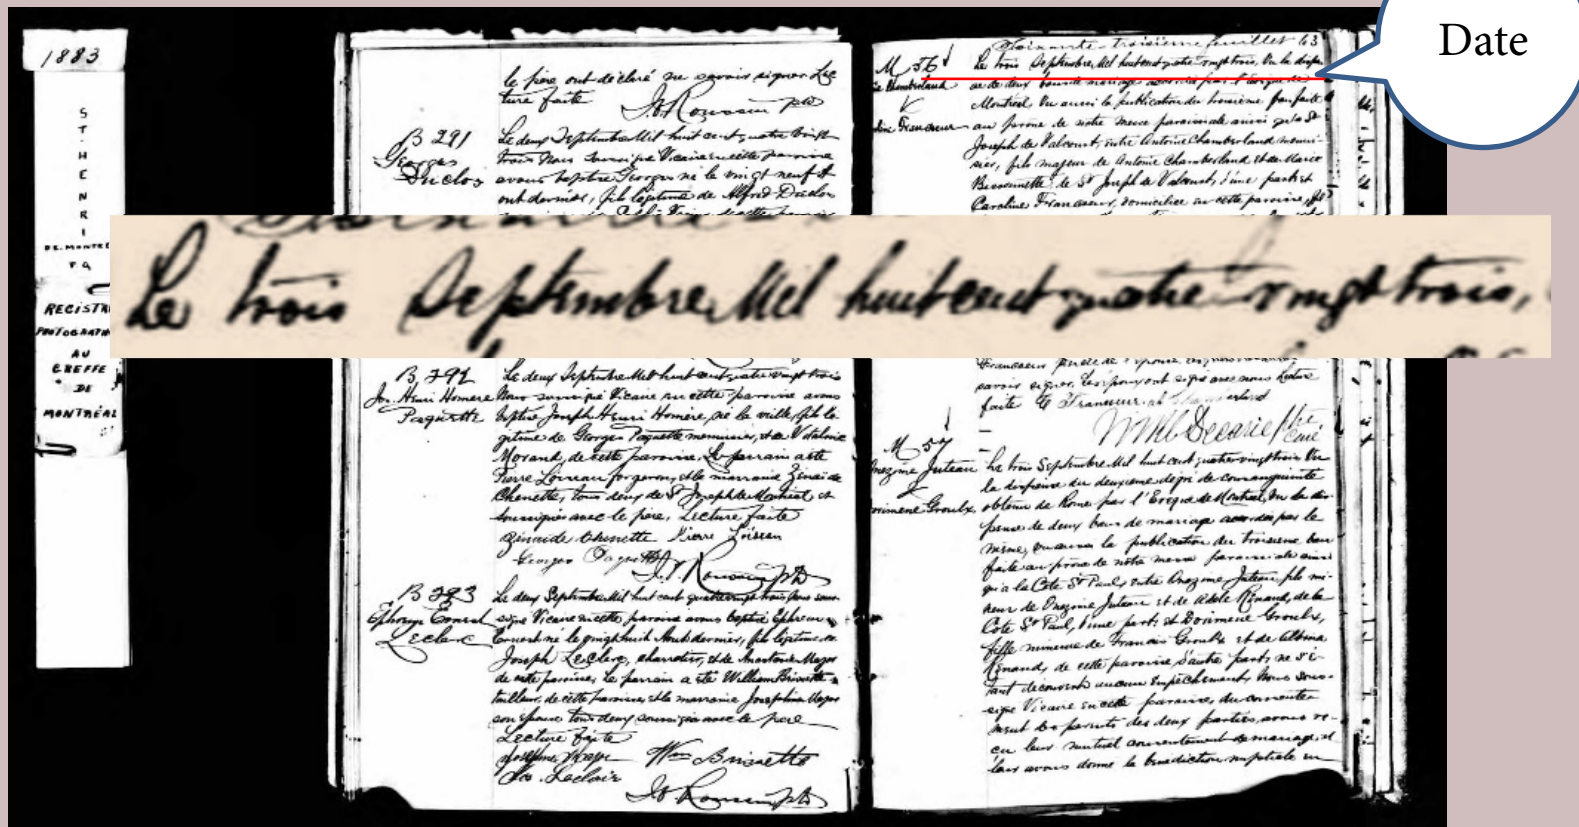 Date
1883
ST-HENRI
DE MONTRÉAL
P.Q.
REGISTRE
PHOTOGRAPHIÉ
AU
GREFFE
DE
MONTRÉAL
le père ont déclaré ne savoir signer Lec
ture faite
B 291
Georges
Duclos
Le deux Septembre Mil huit cent quatre vingt
trois Nous soussigné Vicaire en cette paroisse
avons baptisé Georges né le vingt neuf A
out dernier, fils légitime de Alfred Duclos
Le trois Septembre Mil huit cent quatre vingt trois,
B 292
Jos. Henri Homère
Paquette
Le deux Septembre Mil huit cent quatre vingt trois
Nous soussigné Vicaire en cette paroisse avons
baptisé Joseph Henri Homère, né la veille, fils lé
gitime de Georges Paquette menuisier, et de Vitaline
Morand, de cette paroisse. Le parrain a été
Pierre Loiseau forgeron, et la marraine Zénaïde
Chenette, tous deux de St Joseph de Montréal et
soussignés avec le père, Lecture faite
Zénaide Chenette Pierre Loiseau
Georges Paquette
B 293
Ephrem Ernest
Leclerc
Le deux Septembre Mil huit cent quatre vingt trois Nous sous
signé Vicaire en cette paroisse avons baptisé Ephrem
Ernest né le vingt huit Août dernier, fils légitime de
Joseph LeClerc, charretier, et de Anastasie Major
de cette paroisse, le parrain a été William Brissette
tailleur, de cette paroisse et la marraine Josephine Major
son épouse tous deux soussignés avec le père
Lecture faite
Josephine Major Wm Brissette
Jos. Leclair
Soixante-troisième feuillet 63
M 56
Chamberland
&
Francoeur
Le trois Septembre Mil huit cent quatre vingt trois, Vu la dispen
se de deux bans de mariage accordée par l'Evêque de
Montréal, Vu aussi la publication du troisième ban faite
au prône de notre messe paroissiale ainsi qu'à St
Joseph de Valcourt, entre Antoine Chamberland menui-
sier, fils majeur de Antoine Chamberland et de Marie
Bissonnette de St Joseph de Valcourt, d'une part et
Caroline Francoeur, domiciliée en cette paroisse, fille
savoir signer. Les époux ont signé avec nous Lecture
faite
M 57
Onezime Juteau
&
Dorimene Groulx
Le trois Septembre Mil huit cent quatre vingt trois Vu
la dispense du deuxième degré de consanguinité
obtenue de Rome par l'Evêque de Montréal, Vu la dis
pense de deux bans de mariage accordée par le
même, vu aussi la publication du troisième ban
faite au prône de notre messe paroissiale ainsi
qu'à la Côte St Paul, entre Onezime Juteau fils mi-
neur de Onezime Juteau et de Adele Renaud, de la
Côte St Paul, d'une part, et Dorimene Groulx,
fille mineure de Francois Groulx et de Albina
Renaud, de cette paroisse d'autre part, ne s'é-
tant découvert aucun empêchement, Nous sous-
signé Vicaire en cette paroisse, du consente
ment des parents des deux parties, avons re-
çu leur mutuel consentement de mariage, et
leur avons donné la bénédiction nuptiale en